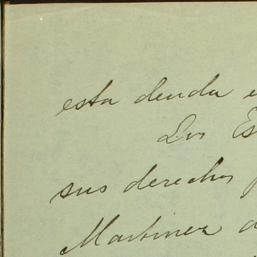 esta deuda e
Los Es
sus derechos p
Martinez d